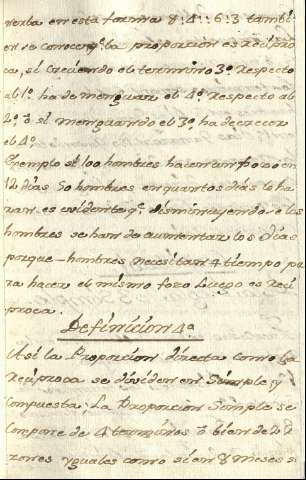 nerla en esta forma 8:4::6:3 tambi
en se conoce q.e la proporcion es recipro
ca, si creciendo el termino 3.o respecto
al 1.o ha de menguar el 4.o respecto al
2.o ô si menguando el 3.o ha de crecer
el 4.o
Exemplo si 100 hombres hacen un foso en
12 dias 50 hombres en quantos dias le ha
ran es evidente q.e disminuyendose los
hombres se han de aumentar los dias
porque hombres necesitan + tiempo pa
ra hacer el mismo foso luego es reci
proca.
Definicion 4.a
Asi la Proporcion directa como la
reciproca se dividen en Simple y
Compuesta, La Proporcion Simple se
Compone de 4 terminos ô bien de 2 r
zones yguales como si en 8 meses s